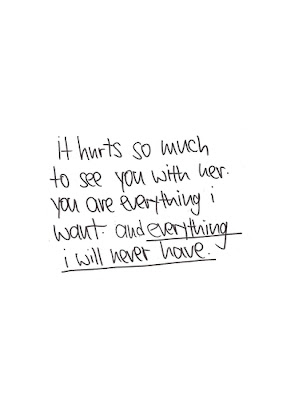 it hurts so much
to see you with her.
you are everything i
want. and everything
i will never have.